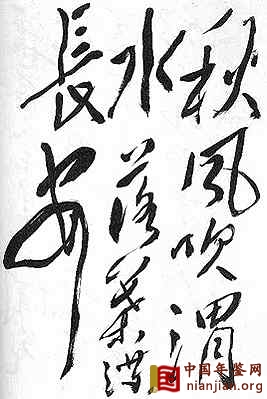 秋風吹渭
水落葉滿
長安
中国年鉴网
nianjian.org